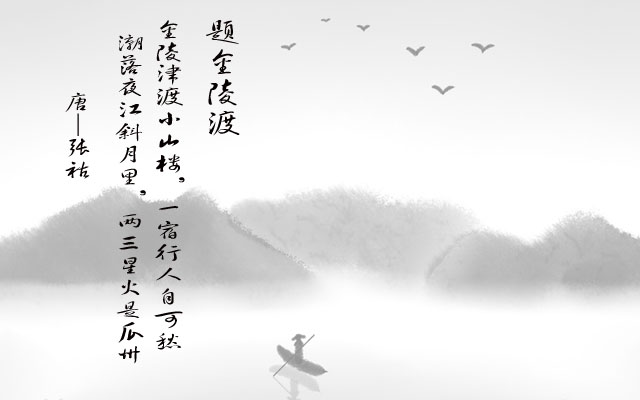 题金陵渡
金陵津渡小山楼，一宿行人自可愁
潮落夜江斜月里，两三星火是瓜州
唐—张祜